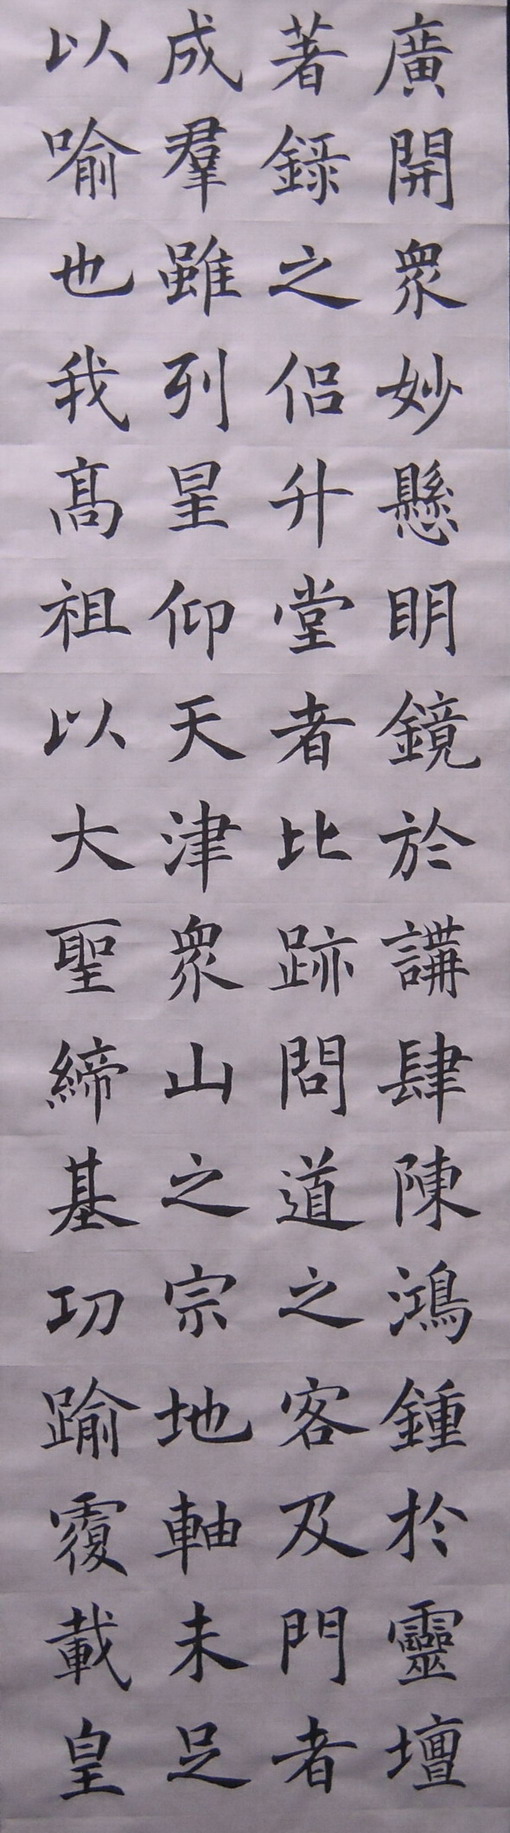 廣開衆妙懸明鏡於講肆陳鴻鍾於靈壇
著錄之侶升堂者比跡問道之客及門者
成羣雖列星仰天津衆山之宗地軸未足
以喻也我高祖以大聖締基功踰覆載皇